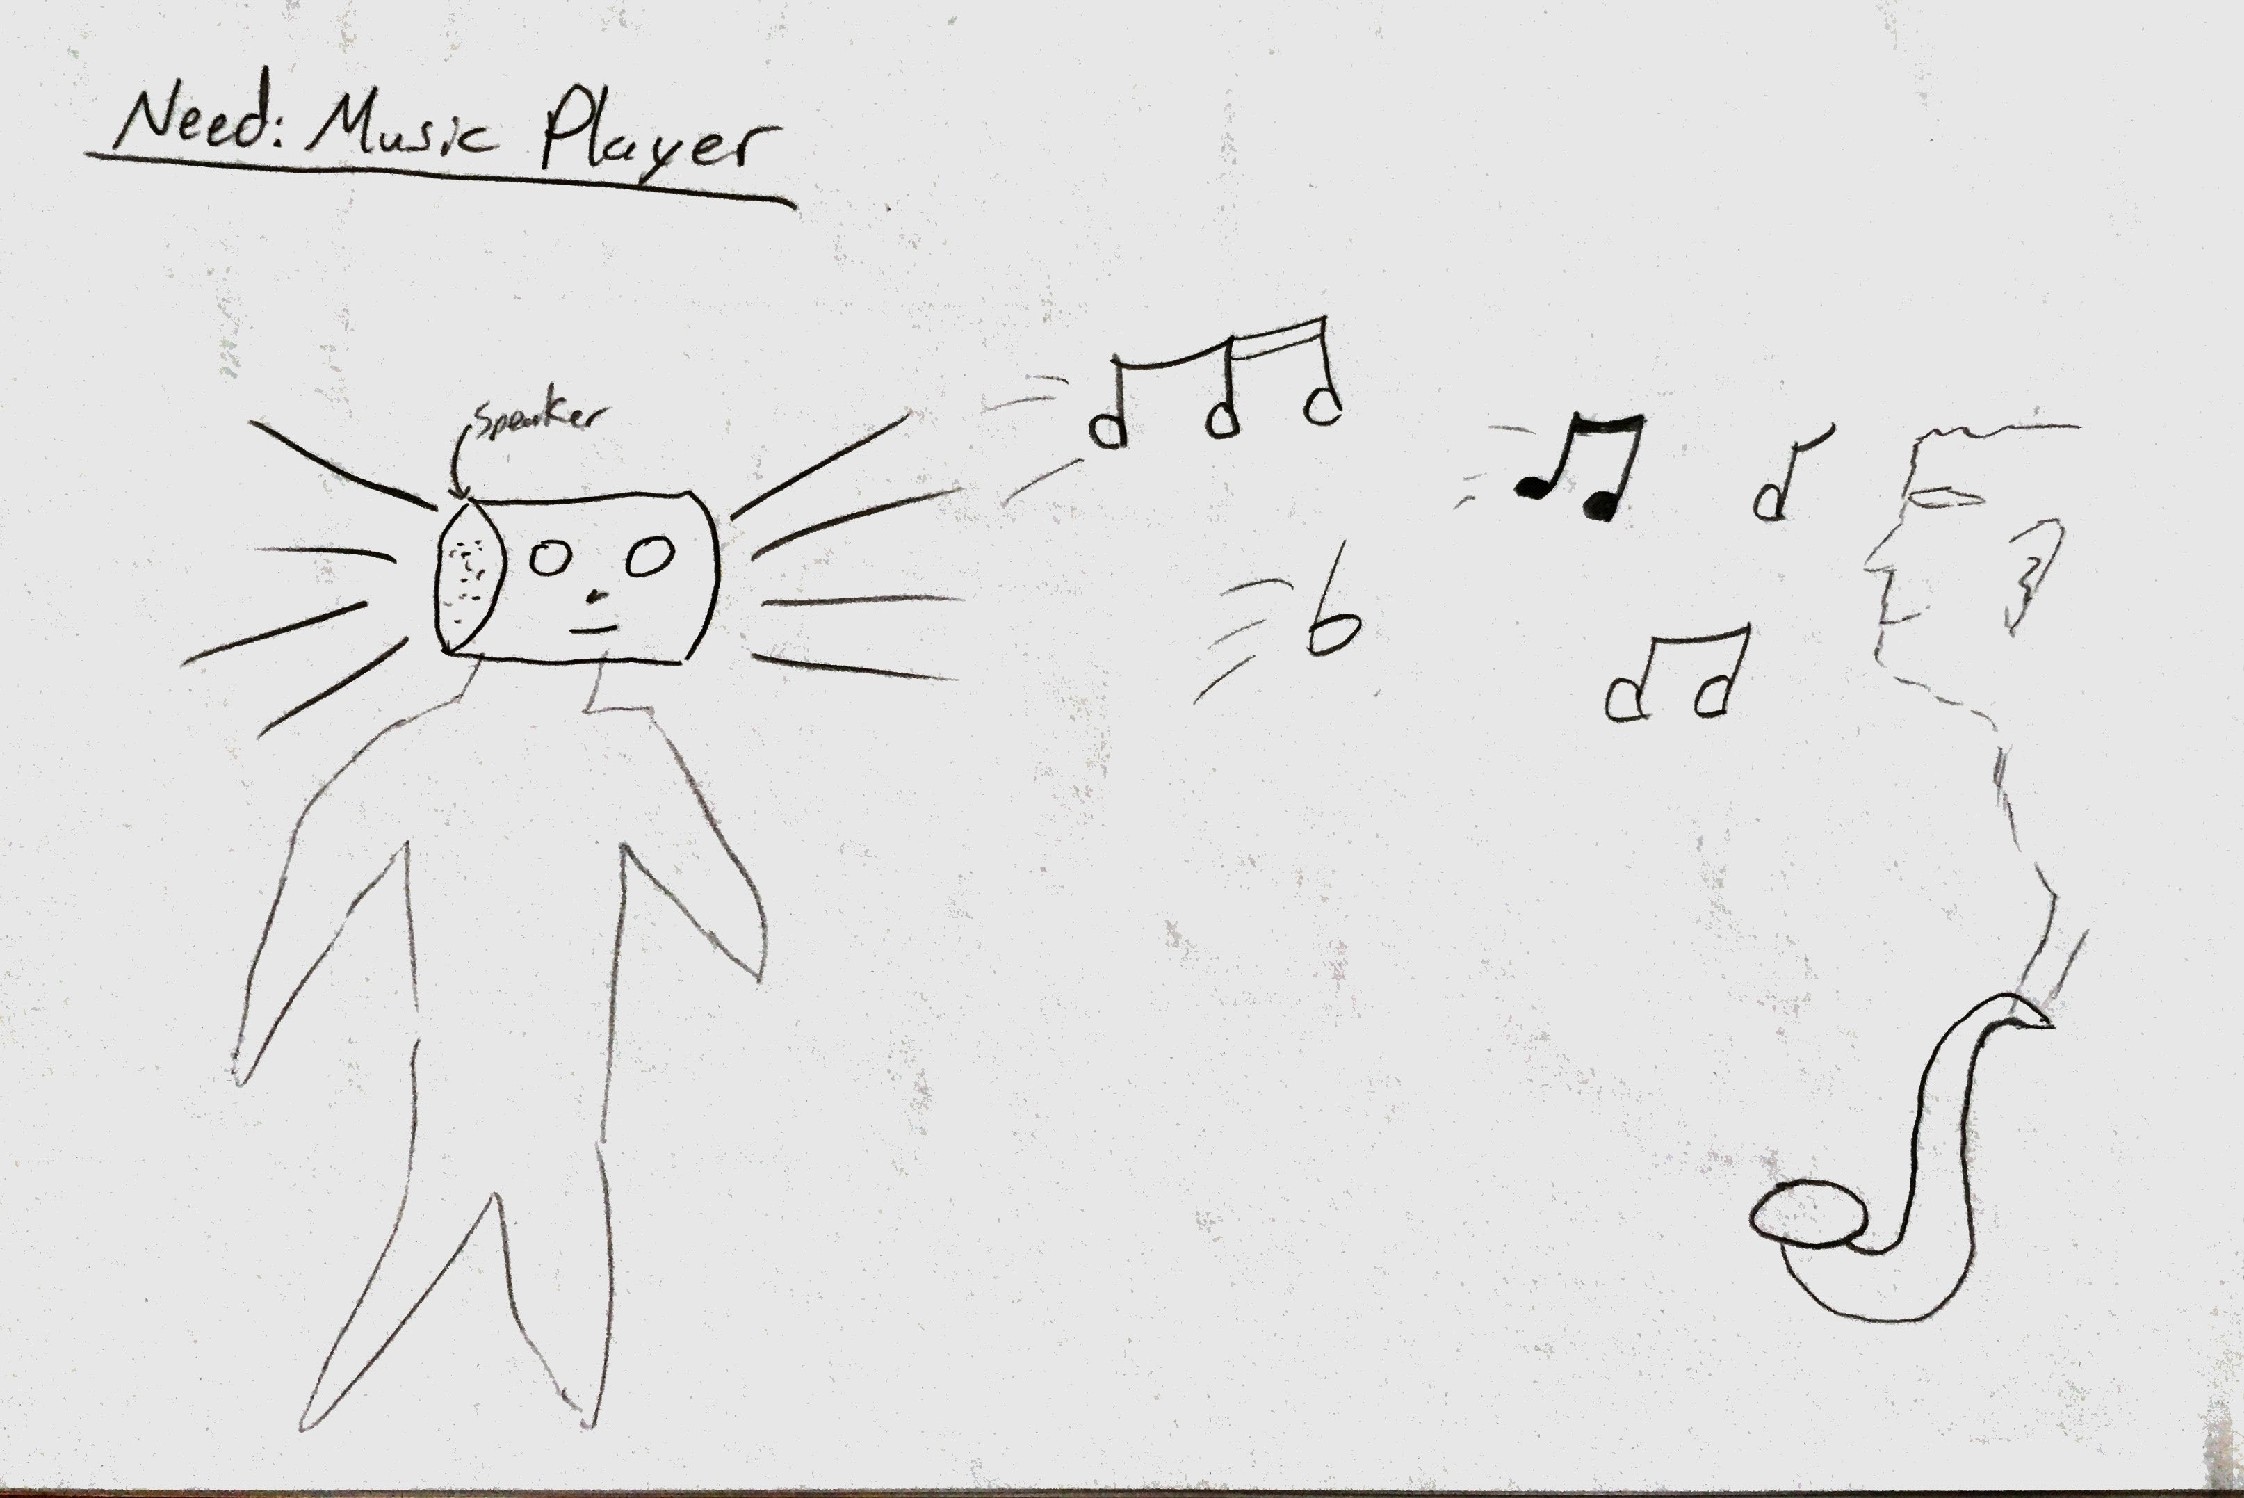 Need: Music Player
Speaker